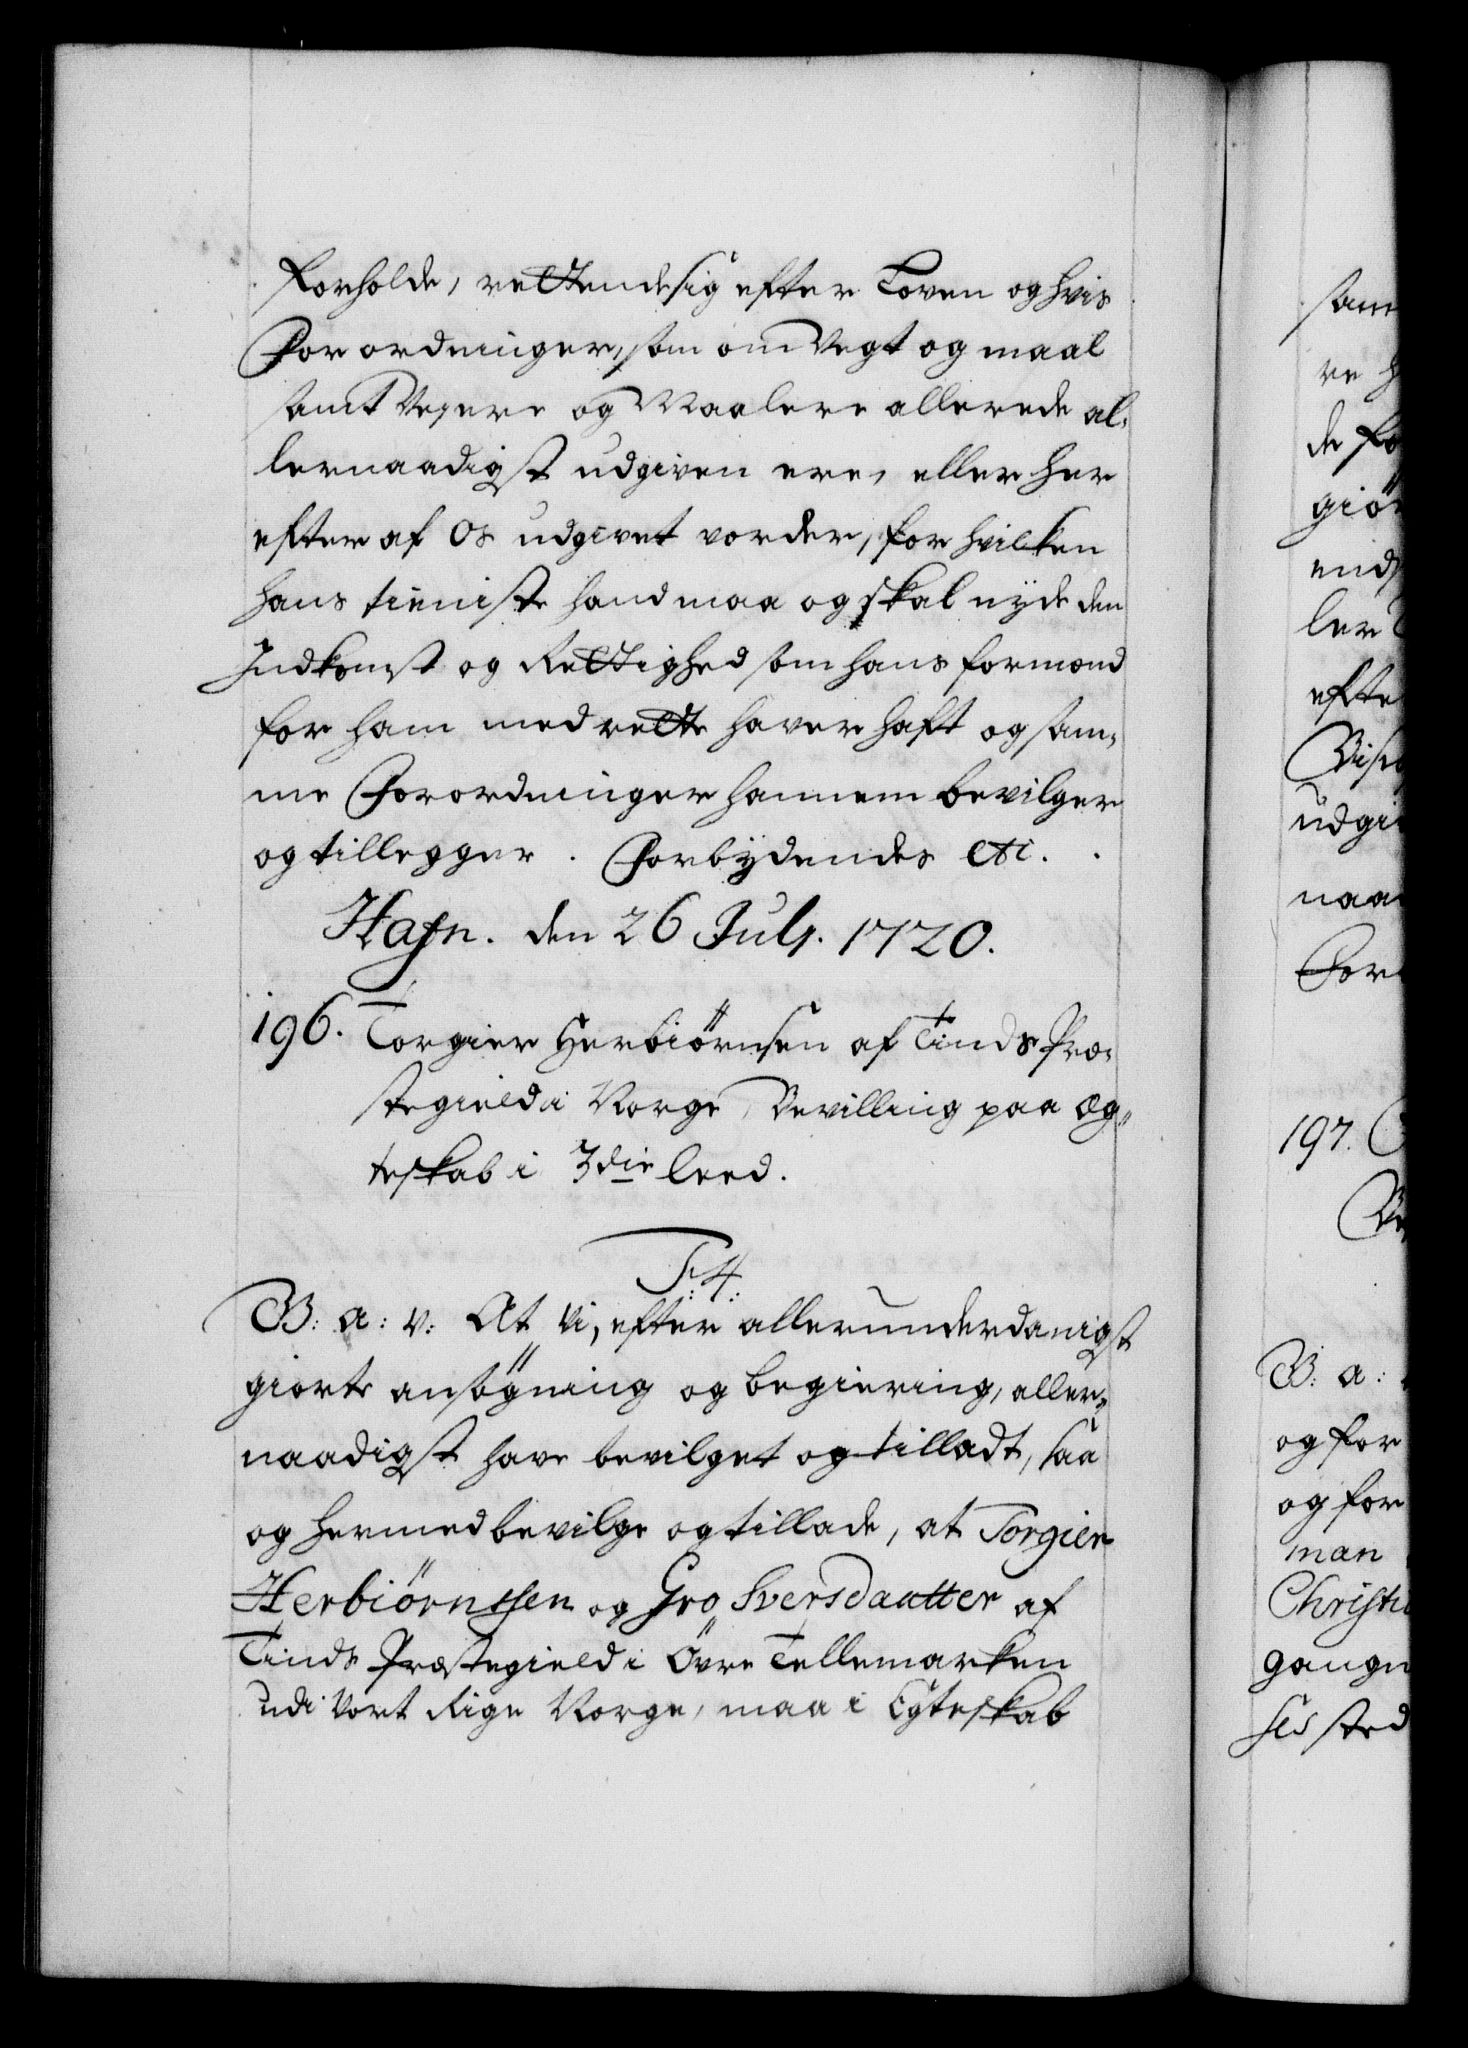 forholde, rettende sig efter Loven og hvis
Forordninger, som om Vegt og maal
samt Vejere og Maalere allerede al-
lernaadigst udgiven ere, eller her
efter af Os udgivet vorder, for hvilken
hans tieniste hand maa og skal nyde den
Indkomst og Rettighed som hans formænd
for ham med rette haver haft og sam-
me Forordninger hannem bevilger
og tillegger. Forbydendes etc.
Hafn. den 26 July. 1720.
196. Torgier Herbiörnsen af Tinds Præ-
stegield i Norge, Bevilling paa Æg-
teskab i 3die leed.
F: 4:
G: a: v: At Vi, efter allerunderdanigst
giorte ansögning og begiering, aller-
naadigst have bevilget og tilladt, saa
og hermed bevilge og tillade, at Torgier
Herbiörnssen og Gro Sversdaatter af
Tinds Præstegield i Övre Tellemarken
udi Vort Rige Norge, maa i Egteskab
sam
re h
de fo
giör
ends
ler
efte
udgi
naa
For
197.
Be
G: a:
og for
og for
man
Christi
gangn
ses sted